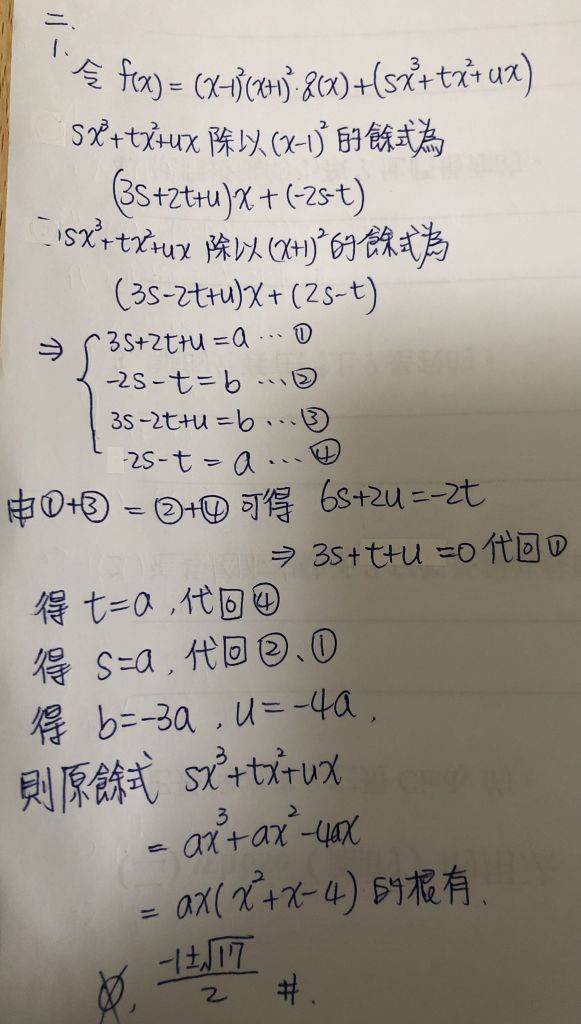 二.
1. 令 f(x) = (x-1)²(x+1)²·g(x)+(sx³+tx²+ux)
sx³+tx²+ux 除以 (x-1)² 的餘式為
(3s+2t+u)x + (-2s-t)
sx³+tx²+ux 除以 (x+1)² 的餘式為
(3s-2t+u)x + (2s-t)
⇒ { 3s+2t+u = a … ①
-2s-t = b … ②
3s-2t+u = b … ③
-2s-t = a … ④
由①+③ = ②+④ 可得 6s+2u = -2t
⇒ 3s+t+u = 0 代回①
得 t=a, 代回④
得 s=a, 代回②、①
得 b=-3a, u=-4a,
則原餘式 sx³+tx²+ux
= ax³+ax²-4ax
= ax(x²+x-4) 的根有.
, (-1±√17)/2 #.